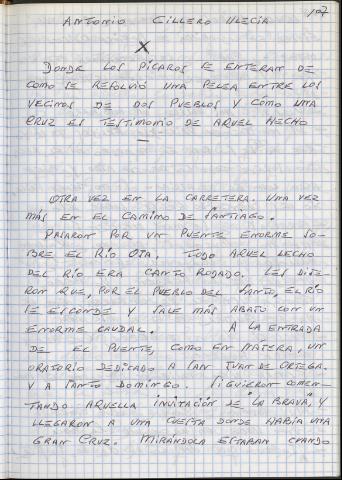 107
ANTONIO CILLERO ULECIA
X
DONDE LOS PÍCAROS SE ENTERAN DE
COMO SE RESOLVIÓ UNA PELEA ENTRE LOS
VECINOS DE DOS PUEBLOS Y CÓMO UNA
CRUZ ES TESTIMONIO DE AQUEL HECHO
—
OTRA VEZ EN LA CARRETERA. UNA VEZ
MÁS EN EL CAMINO DE SANTIAGO.
PASARON POR UN PUENTE ENORME SO-
BRE EL RÍO OJA. TODO AQUEL LECHO
DEL RÍO ERA CANTO RODADO. LES DIJE-
RON QUE, POR EL PUEBLO DEL SANTO, EL RÍO
SE ESCONDE Y SALE MÁS ABAJO CON UN
ENORME CAUDAL. A LA ENTRADA
DE EL PUENTE, COMO EN NÁJERA, UN
ORATORIO DEDICADO A SAN JUAN DE ORTEGA.
Y A SANTO DOMINGO. SIGUIERON COMEN-
TANDO AQUELLA INVITACIÓN DE "LA BRAVA", Y
LLEGARON A UNA CUESTA DONDE HABÍA UNA
GRAN CRUZ. MIRÁNDOLA ESTABAN CUANDO